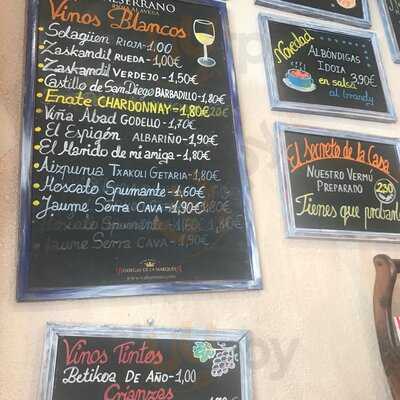 SERRANO
Vinos Blancos
Solagüen RIOJA-1,00
Zaskandil RUEDA-1,00€
Zaskandil VERDEJO-1,50€
Castillo de San Diego BARBADILLO-1,80€
Enate CHARDONNAY-1,80€
Viña Abad GODELLO-1,70€
El Espigón ALBARIÑO-1,90€
El Marido de mi amiga-1,80€
Aizpurua TXAKOLI GETARIA-1,80€
Moscato Spumante-1,60€
Jaume Serra CAVA-1,90€
Moscato Spumante-1,60€
Jaume Serra CAVA-1,90€
BODEGAS DE LA MARQUESA
Vinos Tintos
Betikoa DE AÑO-1,00
Crianzas
Novedad
ALBÓNDIGAS
IDOIA
3,90€
en salsa
al brandy
El Secreto de la Casa
NUESTRO VERMÚ
PREPARADO
2,30
Tienes que probarlo